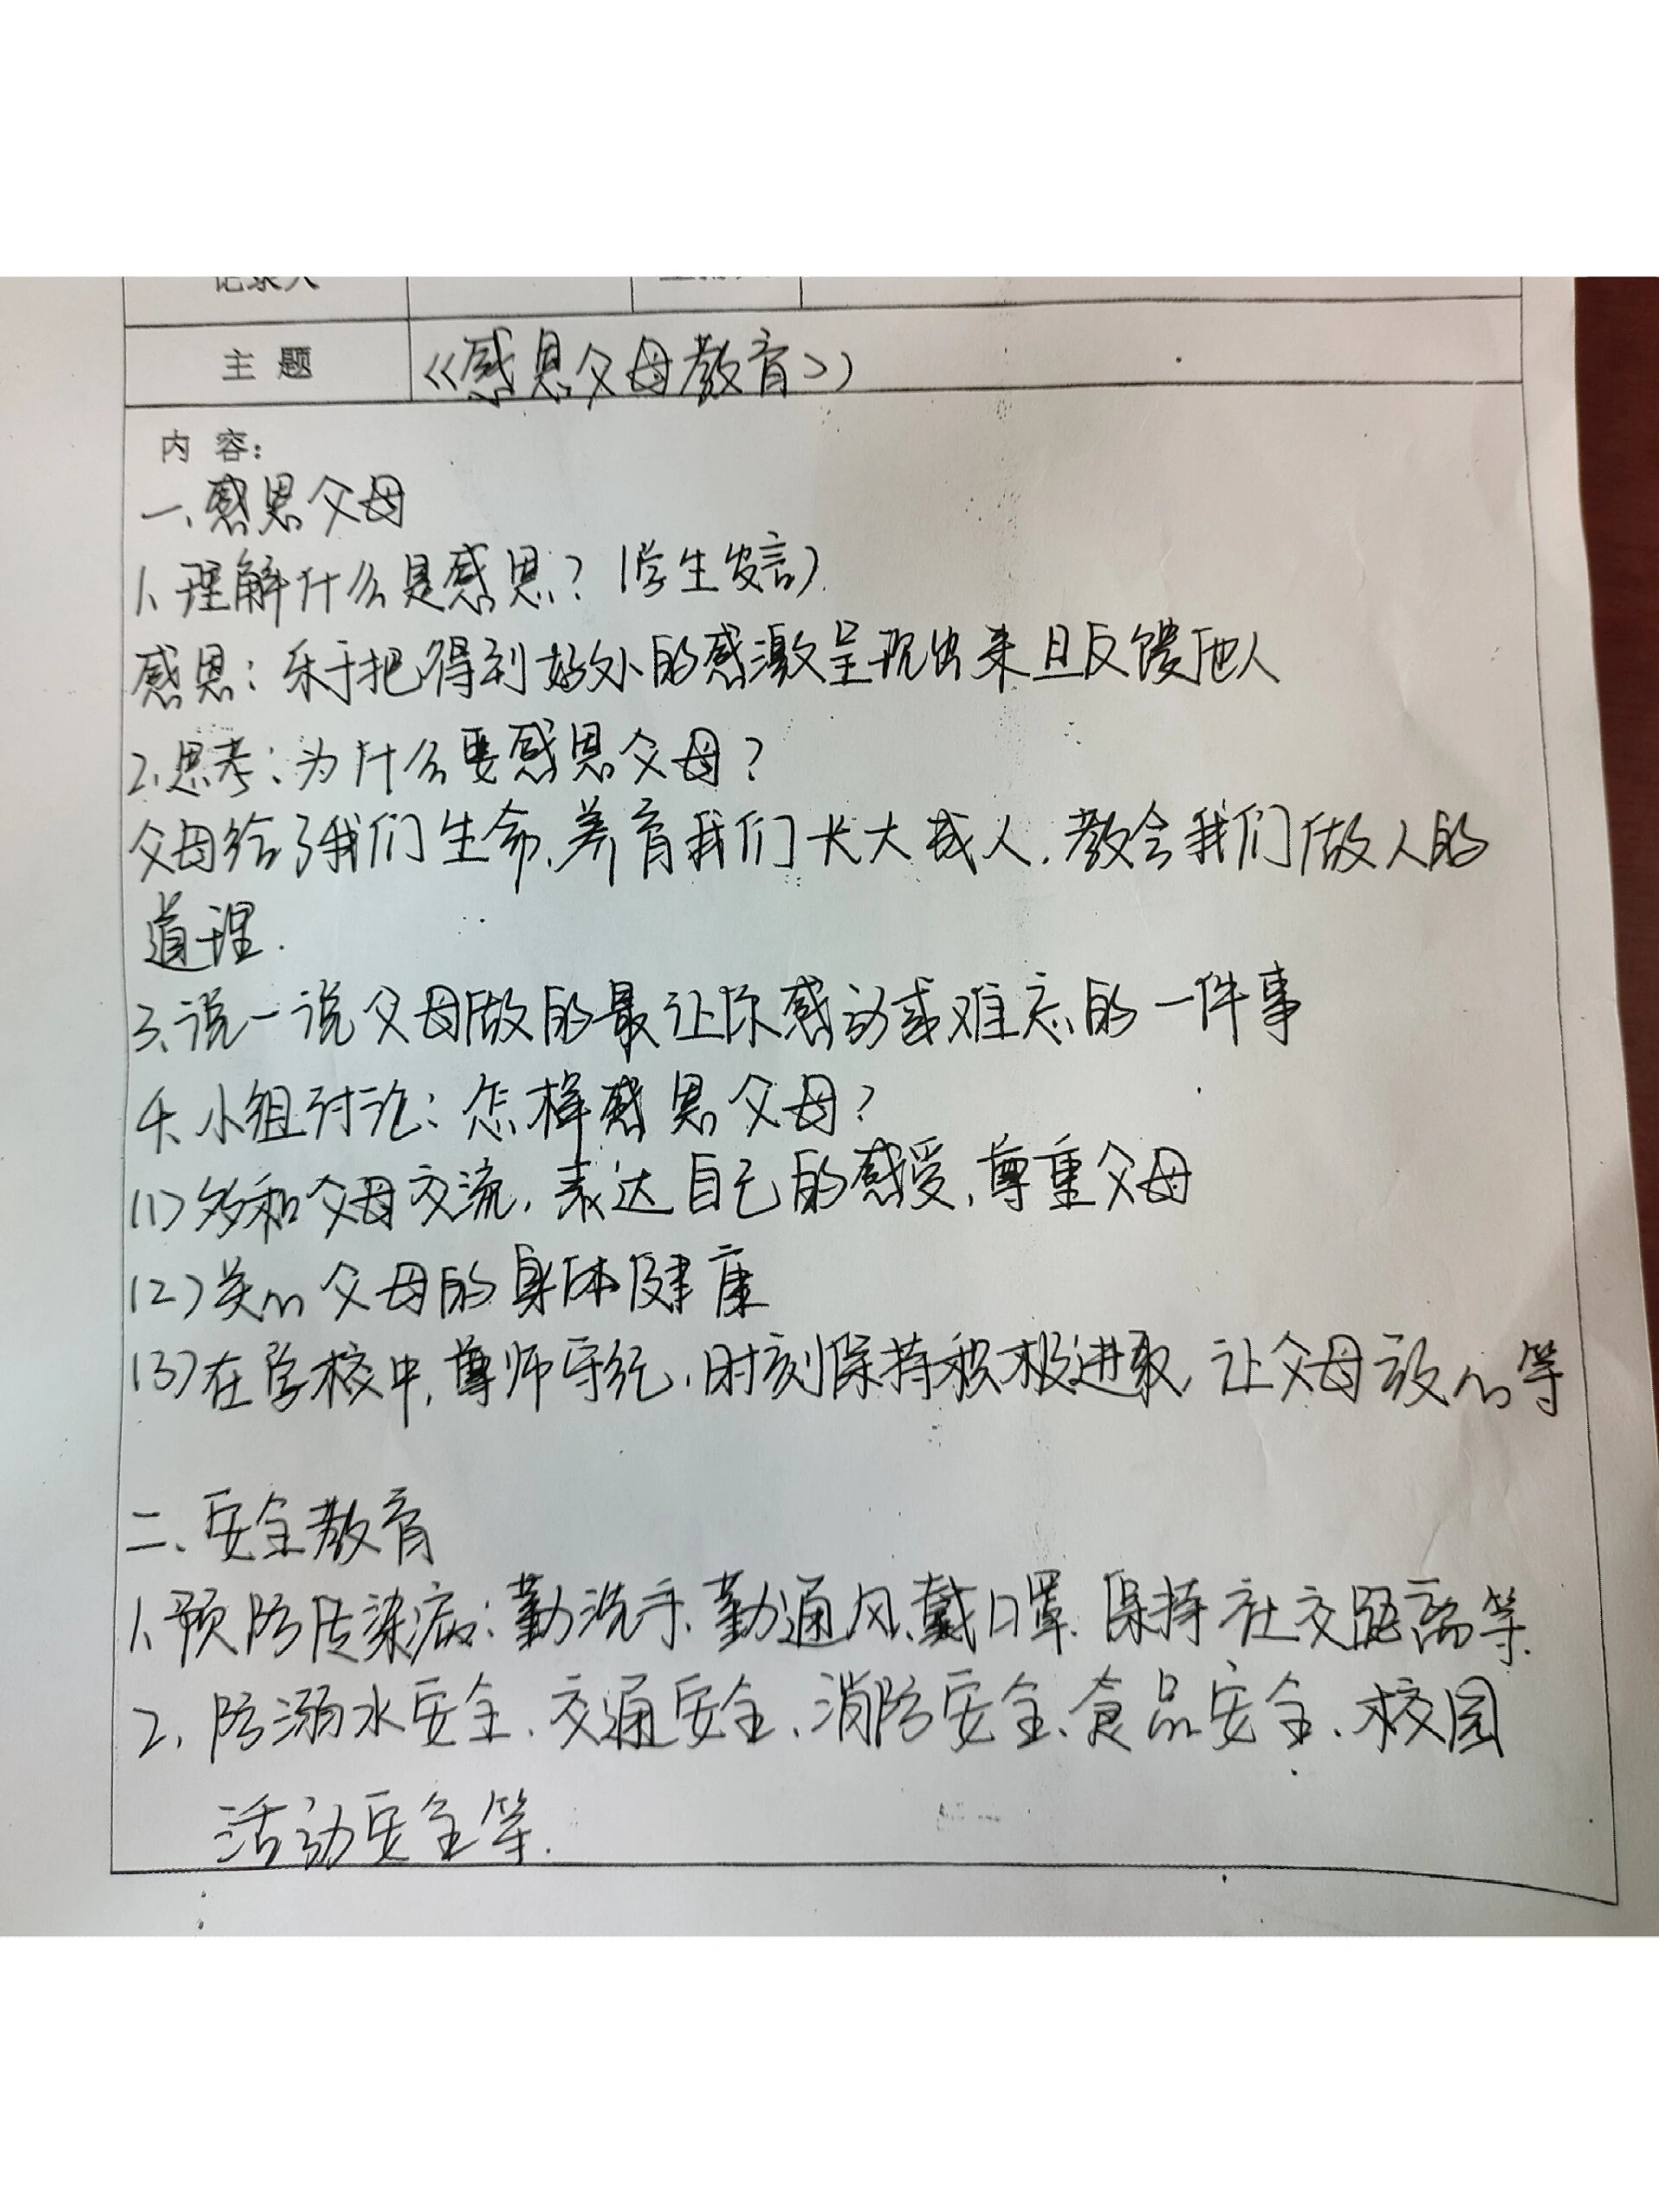 记录人
主 题 《感恩父母教育》
内 容：
一、感恩父母
1、理解什么是感恩？（学生发言）
感恩：乐于把得到好处的感激呈现出来且反馈他人
2、思考：为什么要感恩父母？
父母给了我们生命、养育我们长大成人、教会我们做人的
道理.
3、说一说父母做的最让你感动或难忘的一件事
4、小组讨论：怎样感恩父母？
(1)多和父母交流，表达自己的感受，尊重父母
(2)关心父母的身体健康
(3)在学校中，尊师守纪，时刻保持积极进取，让父母放心等
二、安全教育
1、预防传染病：勤洗手、勤通风、戴口罩、保持社交距离等.
2、防溺水安全、交通安全、消防安全、食品安全、校园
活动安全等.